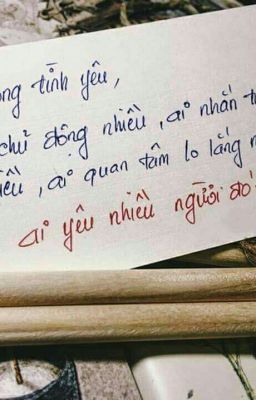 ong tình yêu,
chủ động nhiều, ai nhắn t
iều, ai quan tâm lo lắng n
ai yêu nhiều người đó